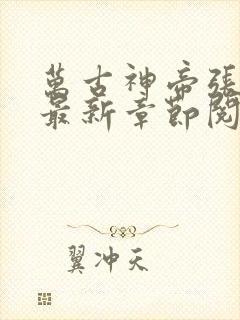 萬古神帝張
最新章節閱
翼冲天